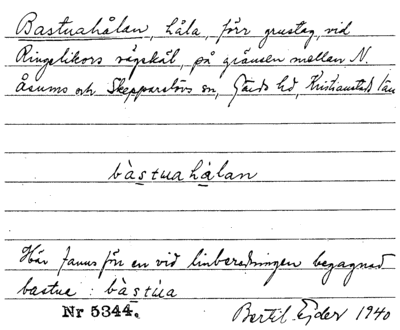 Bastuahålan, håla, förr grustag, vid
Ringelikors vägskäl, på gränsen mellan N.
Åsums och Skepparslövs sn, Gärds hd, Kristianstads län
bàstuahålan
Här fanns förr en vid linberedningen begagnad
bastue : bàstúa
Nr 5344. Bertil Ejder 1940